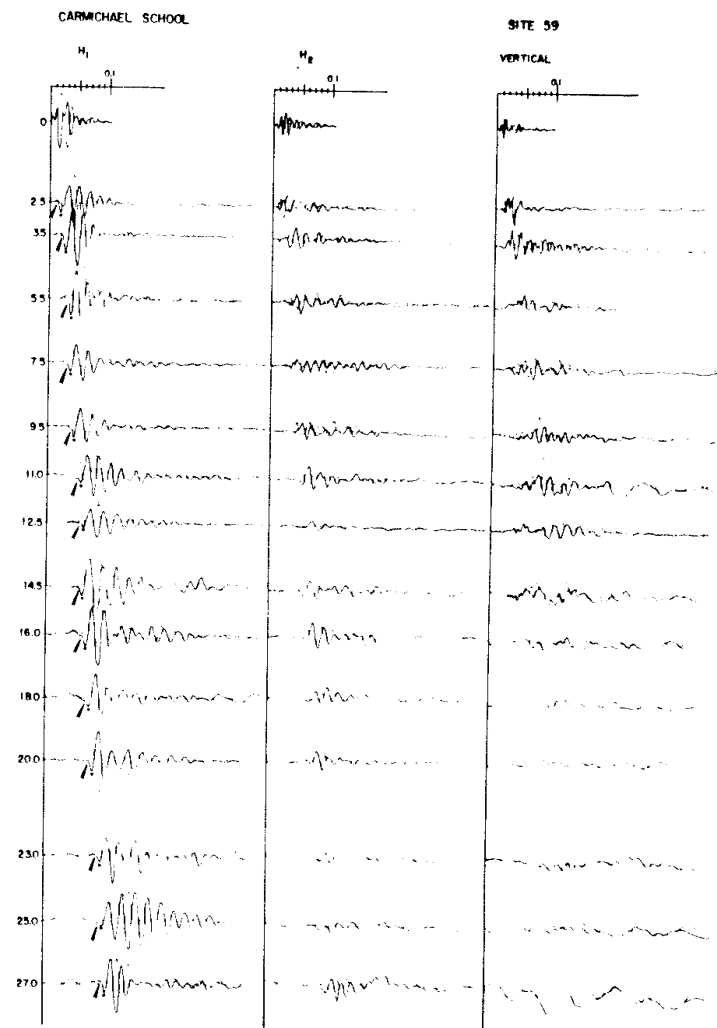 CARMICHAEL SCHOOL
SITE 59
H₁
H₂
VERTICAL
0.1
0.1
0.1
0
2.5
3.5
5.5
7.5
9.5
11.0
12.5
14.5
16.0
18.0
20.0
23.0
25.0
27.0